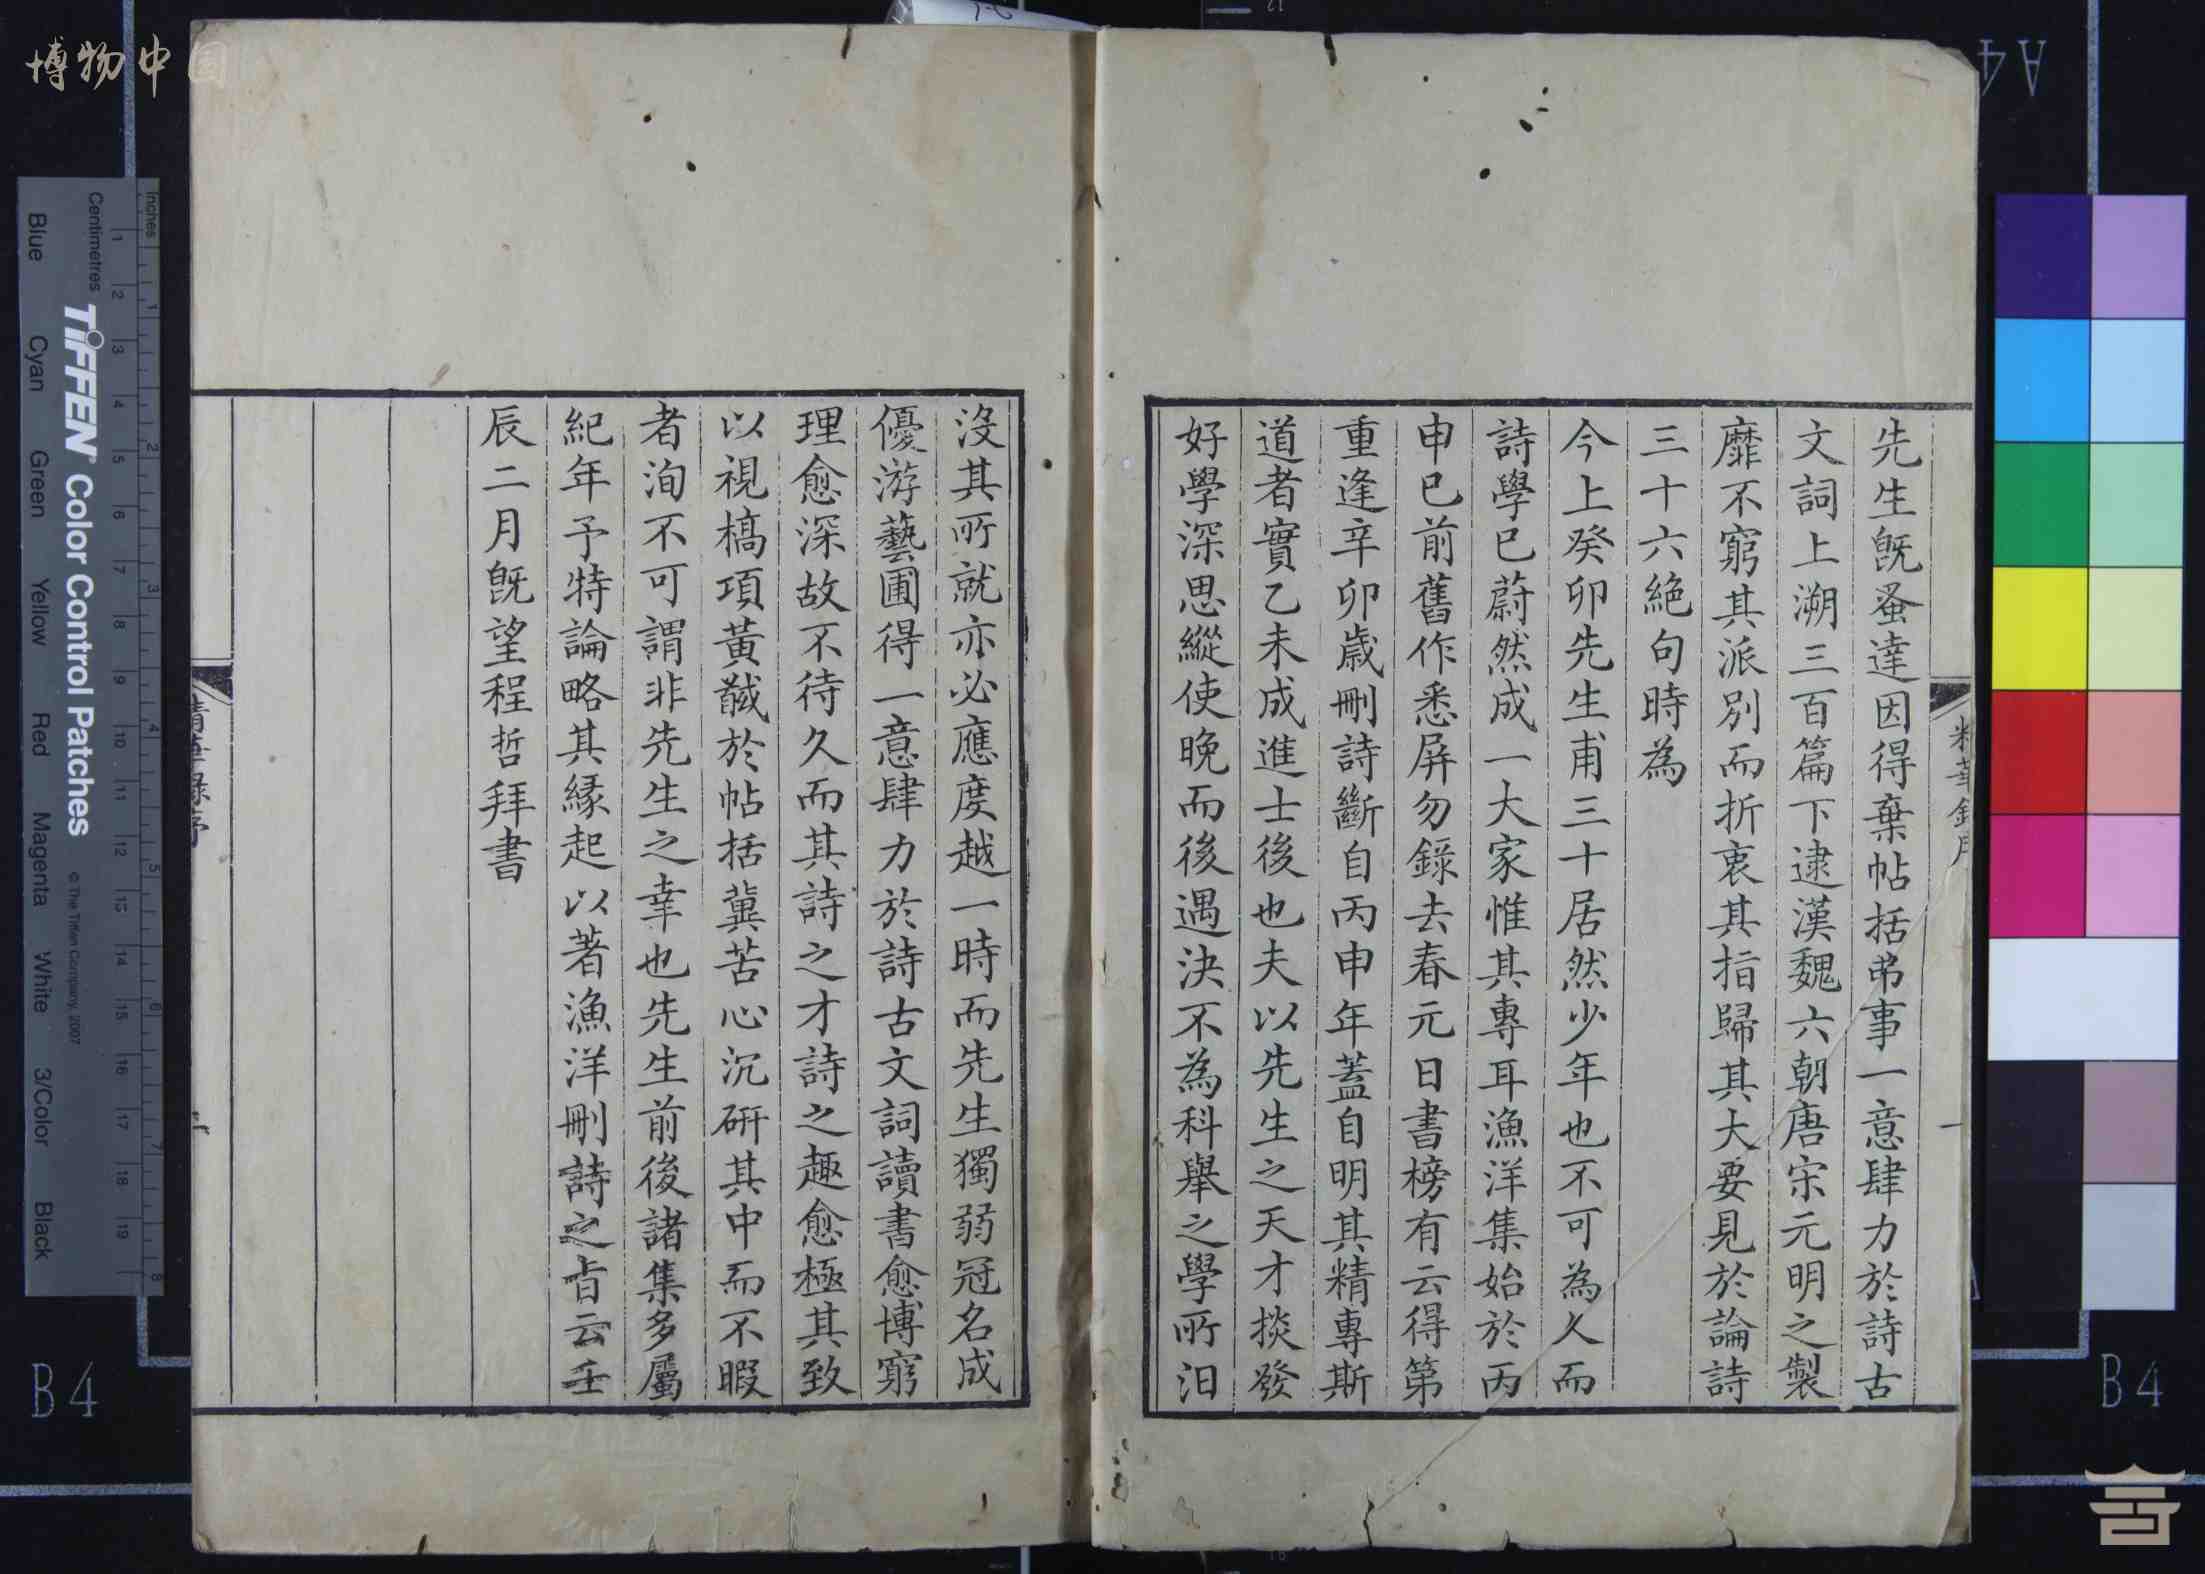 先生旣蚤達因得棄帖括弟事一意肆力於詩古
文詞上溯三百篇下逮漢魏六朝唐宋元明之製
靡不窮其派別而折衷其指歸其大要見於論詩
三十六絶句時為
今上癸卯先生甫三十居然少年也不可為久而
詩學已蔚然成一大家惟其專耳漁洋集始於丙
申已前舊作悉屏勿錄去春元日書榜有云得第
重逢辛卯歲刪詩斷自丙申年蓋自明其精專斯
道者實乙未成進士後也夫以先生之天才掞發
好學深思縱使晚而後遇決不為科舉之學所汨
沒其所就亦必應度越一時而先生獨弱冠名成
優游藝圃得一意肆力於詩古文詞讀書愈博窮
理愈深故不待久而其詩之才詩之趣愈極其致
以視槁項黃馘於帖括糞苦心沉硏其中而不暇
者洵不可謂非先生之幸也先生前後諸集多屬
紀年予特論略其縁起以著漁洋刪詩之旨云壬
辰二月旣望程哲拜書
精華錄序
一
博物中国
Centimetres
inches
TIFFEN Color Control Patches
© The Tiffen Company, 2007
Blue
Cyan
Green
Yellow
Red
Magenta
White
3/Color
Black
1 2 3 4 5 6 7 8 9 10 11 12 13 14 15 16 17 18 19
1 2 3 4 5 6 7 8
A4
B4
B4